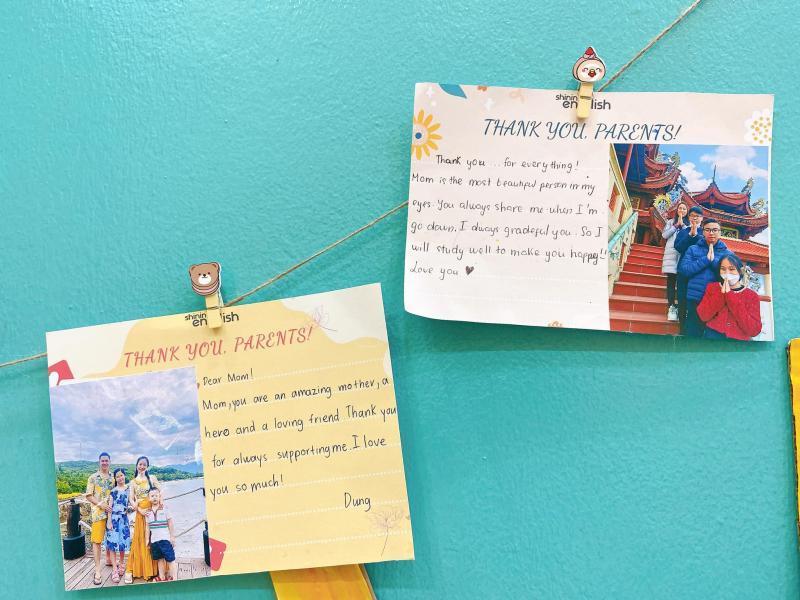 shining
english
THANK YOU, PARENTS!
Thank you ... for everything!
Mom is the most beautiful person in my
eyes. You always share me when I'm
go down. I always gradeful you. So I
will study well to make you happy!!
Love you ♥
shining
english
THANK YOU, PARENTS!
Dear Mom!
Mom, you are an amazing mother, a
hero and a loving friend. Thank you
for always supporting me. I love
you so much!
Dung